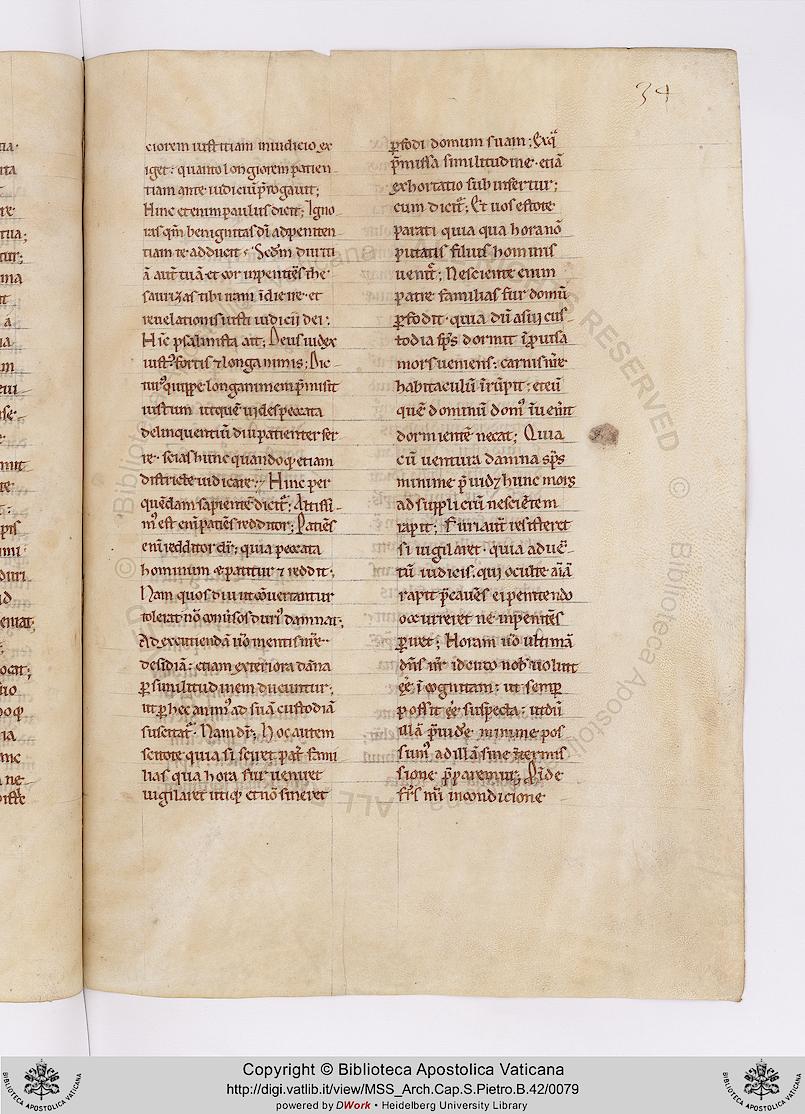 34
ciorem iustitiam in iudicio ex
iget: quanto longiorem patien
tiam ante iudiciū p̄rogauit;
Hinc etenim paulus dicit; Igno
ras qm̄ benignitas dī ad peniten
tiam te adducit; Scdm̄ duriti
ā aut̄ tuā et cor inpenitēs the
saurizas tibi iram ī die ire et
reuelationis iusti iudicii dei;
Hīc psalmista ait; Deus iudex
iustꝰ fortis ⁊ longanimis; Dic
turꝰ quippe longanimem p̄misit
iustum ut quē uides peccata
delinquentiū diu patienter fer
re. scias hunc quandoqꝫ etiam
districte iudicare; Hinc per
quendam sapientē dicit᷑; Altissi
mꝰ est eni᷑ patiēs redditor; Patiēs
eni᷑ redditor dr̄; quia peccata
hominum ⁊ patitur ⁊ reddit;
Nam quos diu ut cōuertantur
tolerat nō cōuersos durꝰ damnat;
Ad excutiendā ūo mentis nr̄e
desidiā: etiam exteriora dāna
ꝑ similitudinem dicuntur;
ut ꝑ hec animꝰ ad sui custodiā
suscitat᷑. Nam dr̄; Hoc autem
scitote quia si sciret pat᷑ fami
lias qua hora fur ueniret
uigilaret utiqꝫ et nō sineret
ꝑfodi domum suam; Ex q̄
p̄missa similitudine etiā
exhortatio subinfertur;
cum dicit᷑; Et uos estote
parati quia qua hora nō
putatis filius hominis
uenit᷑; Nesciente enim
patre familias fur domū
ꝑfodit. quia dū a sui cus
todia sp̄s dormit īprouisa
mors ueniens: carnis nr̄e
habitaculū irrūpit: et eū
quē dominū domꝰ īuenit
dormientē necat; Quia
cū uentura damna sp̄s
minime p̄uidet hunc mors
ad suppliciū nescientem
rapit; Furi aut̄ resisteret
si uigilaret. quia aduē
tū iudicis. qui occulte aīā
rapit p̄cauēs ei penitendo
occurreret ne inpenitēs
ꝑiret; Horam ūo ultimā
dn̄s nr̄ idcirco nob̄ uoluit
eē īcognitam: ut semꝑ
possit eē suspecta: ut dū
illā p̄uidere minime pos
sumꝰ ad illā sine intermis
sione p̄paremur; Proīde
fr̄s mi in condicione
Copyright © Biblioteca Apostolica Vaticana
http://digi.vatlib.it/view/MSS_Arch.Cap.S.Pietro.B.42/0079
powered by DWork • Heidelberg University Library